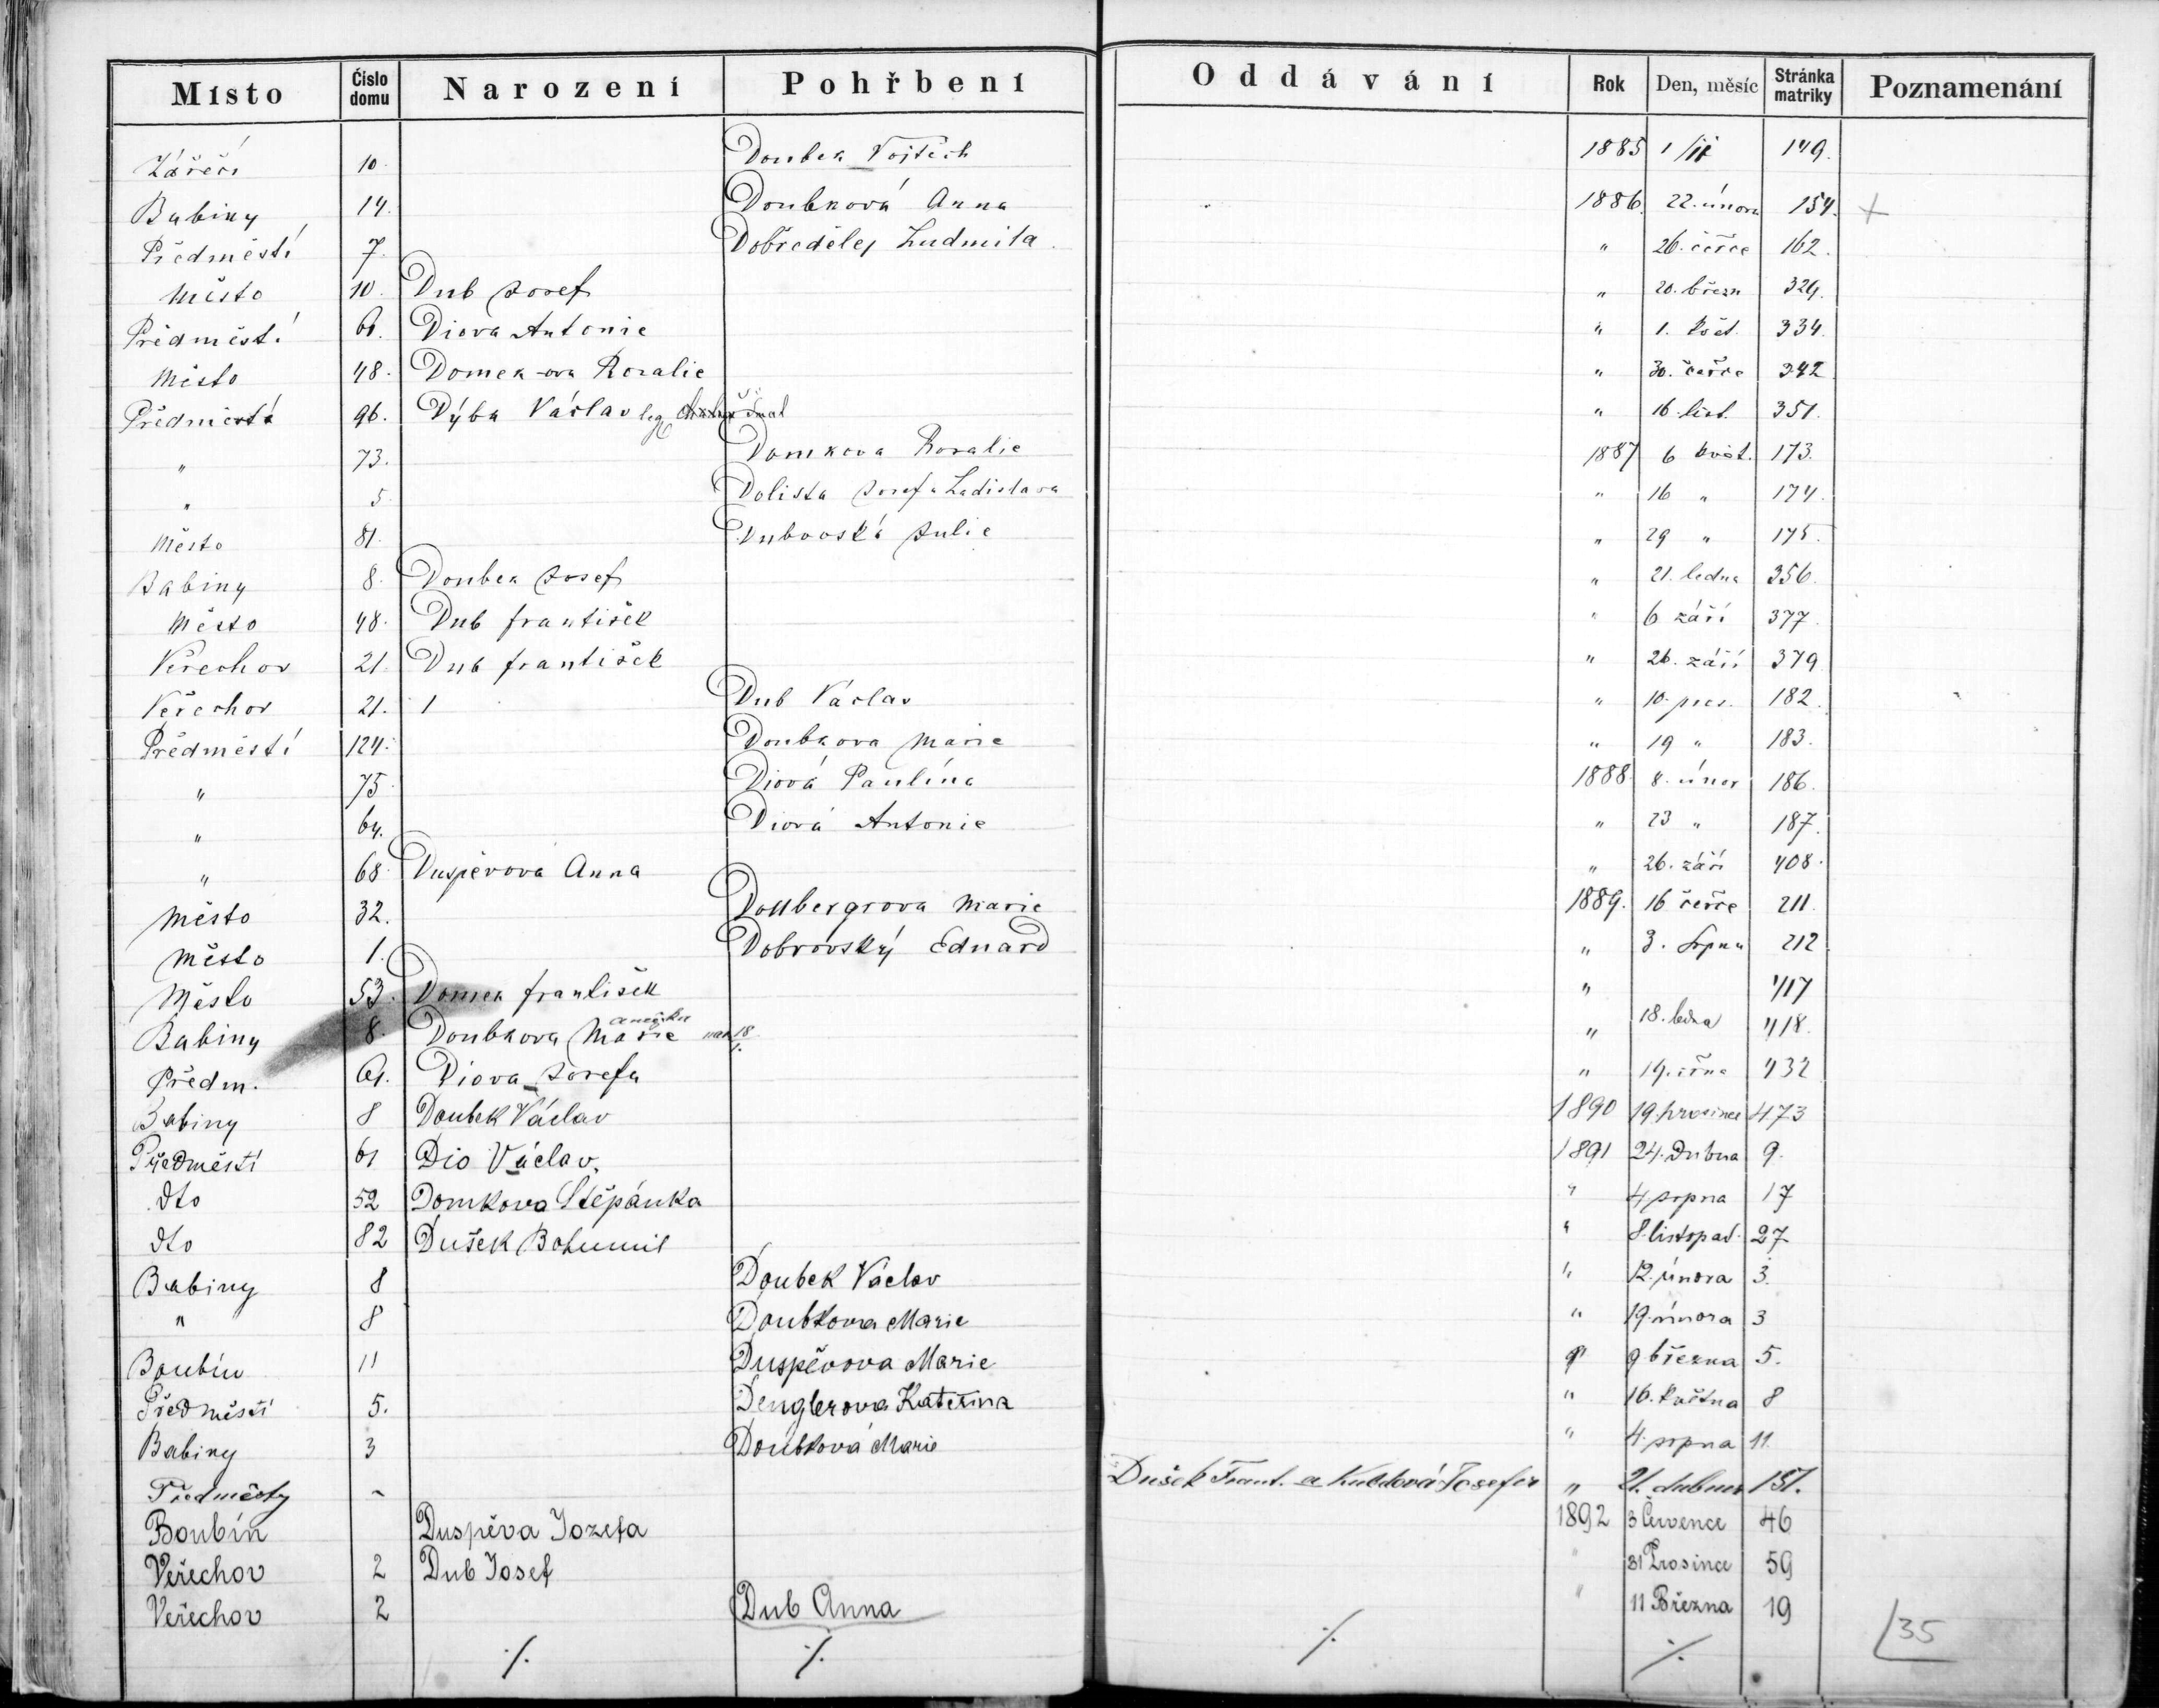 Místo Číslo domu Narození Pohřbení Oddávání Rok Den, měsíc Stránka matriky Poznamenání
Zářečí 10. Doubek Vojtěch 1885 1/11 149.
Babiny 14. Doubková Anna 1886. 22. února 154. +
Předměstí 7. Dobředělej Ludmila " 26. čerce 162.
Město 10. Dub Josef " 20. březn 329.
Předměstí 61. Diova Antonie " 1. květ. 334.
Město 48. Domek-ova Rozalie " 30. čerce 342
Předměstí 96. Dýba Václav leg " 16. list. 351.
" 73. Domkova Rozalie 1887 6 květ. 173.
" 5 Dolista Josef a Ladislava " 16 " 174.
Město 81. Dubovská Julie " 29 " 175.
Babiny 8. Doubek Josef " 21. ledna 356.
Město 48. Dub František " 6 září 377
Veřechov 21. Dub František " 26. září 379
Veřechov 21. 1 Dub Václav " 10. pros. 182.
Předměstí 124. Doubkova Marie " 19 " 183.
" 75. Diová Paulína 1888 8. únor 186.
" 64. Diová Antonie " 23 " 187.
" 68. Duspěvová Anna " 26. září 408.
Město 32. Dollbergrova Marie 1889. 16 čerce 211.
Město 1. Dobrovský Eduard " 3. srpna 212
Město 53. Domek František " 417
Babiny 8. Doubkova Marie anežka nar. 18/1. " 18. ledna 418.
Předm. 61. Diova Josefa " 14. 432
Babiny 8 Doubek Václav 1890 19. prosince 473
Předměstí 61 Dio Václav. 1891 24. Dubna 9.
dto 52 Domkova Štěpánka " 4 srpna 17
dto 82 Dušek Bohumil " 8. listopad. 27
Babiny 8 Doubek Václav " 12. února 3.
" 8 Doubkova Marie " 19 února 3
Boubín 11 Duspěvova Marie " 9 března 5.
Předměstí 5. Denglerova Kateřina " 16. května 8
Babiny 3 Doubková Marie " 4. srpna 11.
Předměsty - Dušek Frant. a Kubalová Josefa " 21. dubna 151.
Boubín Duspěva Jozefa 1892 3 Července 46
Veřechov 2 Dub Josef " 31 Prosince 59
Veřechov 2 Dub Anna " 11 Března 19
./. ./. ./. ./. 35